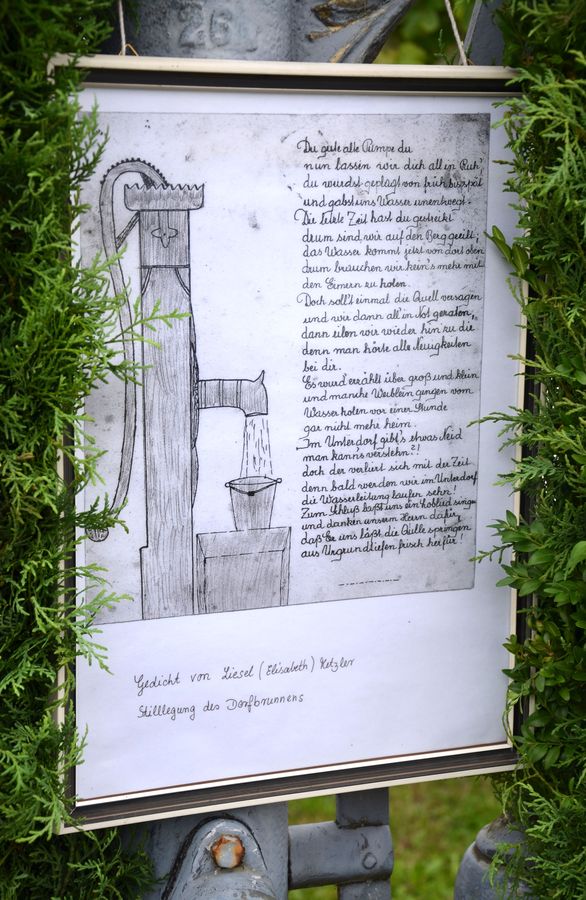 26
Du gute alte Pumpe du
nun lassen wir dich all in Ruh'
du wurdst geplagt von früh bis spät
und gabst uns Wasser unentwegt.
Die letzte Zeit hast du gestreikt
drum sind wir auf den Berg geeilt;
das Wasser kommt jetzt von dort oben
drum brauchen wir kein's mehr mit
den Eimern zu holen.
Doch soll't einmal die Quell versagen
und wir dann all in Not geraten,
dann eilen wir wieder hin zu dir
denn man hörte alle Neuigkeiten
bei dir.
Es wurd' erzählt über groß und klein
und manche Weiblein gingen vom
Wasser holen vor einer Stunde
gar nicht mehr heim.
Im Unterdorf gibt's etwas Neid
man kann's verstehn?!
doch der verliert sich mit der Zeit
denn bald werden wir im Unterdorf
die Wasserleitung laufen sehn!
Zum Schluß laßt uns ein Loblied singen
und danken unserm Herrn dafür,
daß Er uns läßt die Quelle springen
aus Urgrundtiefen frisch herfür!
Gedicht von Liesel (Elisabeth) Hetzler
Stilllegung des Dorfbrunnens